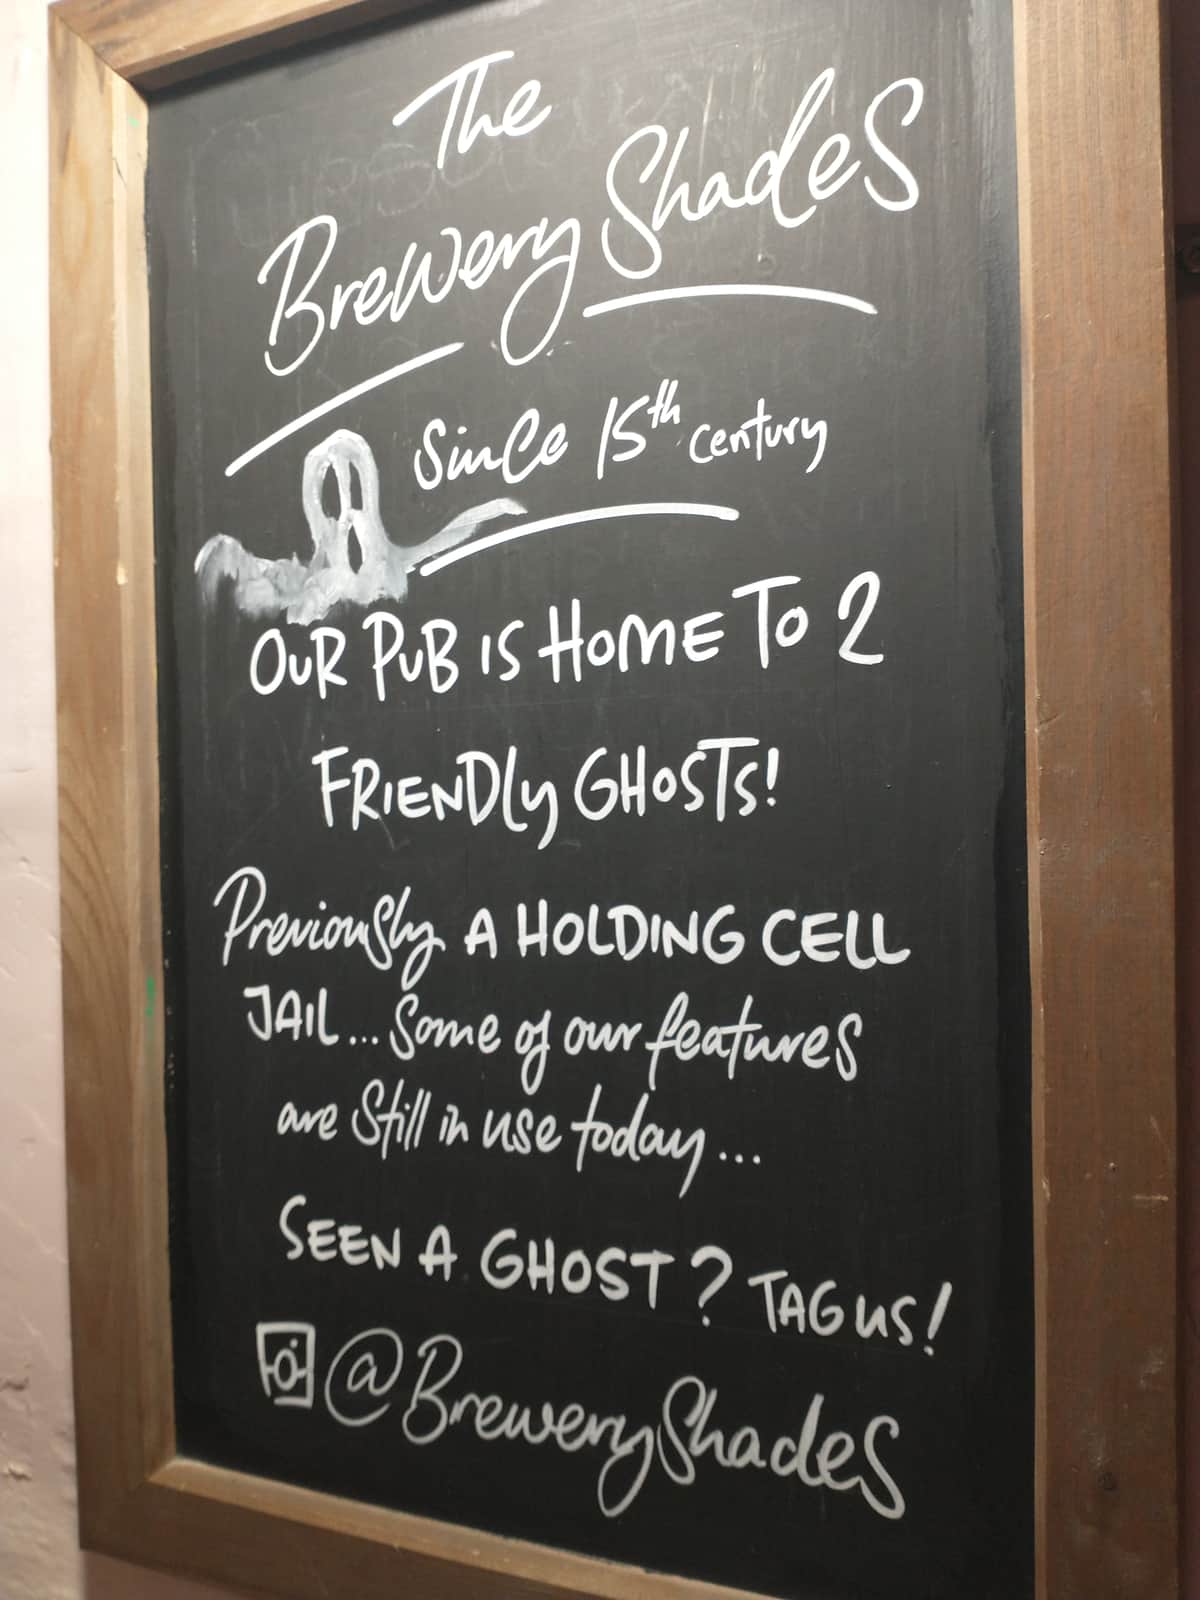 The
Brewery Shades
Since 15th century
OUR PUB IS HOME TO 2
FRIENDLY GHOSTS!
Previously A HOLDING CELL
JAIL... Some of our features
are still in use today...
SEEN A GHOST? TAG US!
@BreweryShades